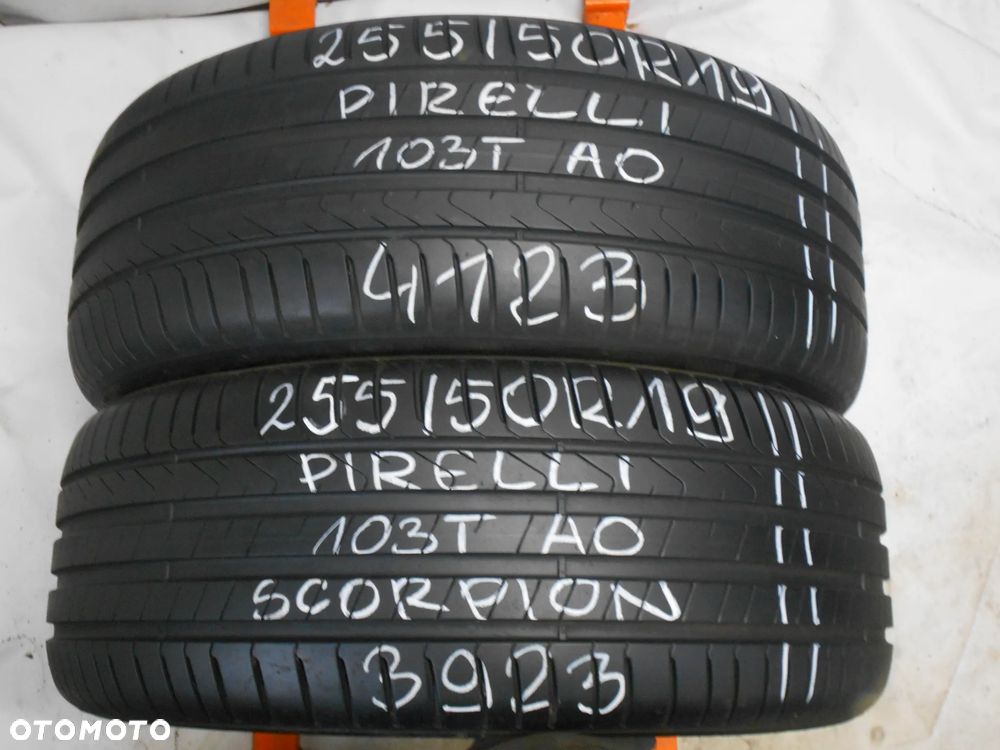 255/50R19
PIRELLI
103T AO
4123
255/50R19
PIRELLI
103T AO
SCORPION
3923
OTOMOTO